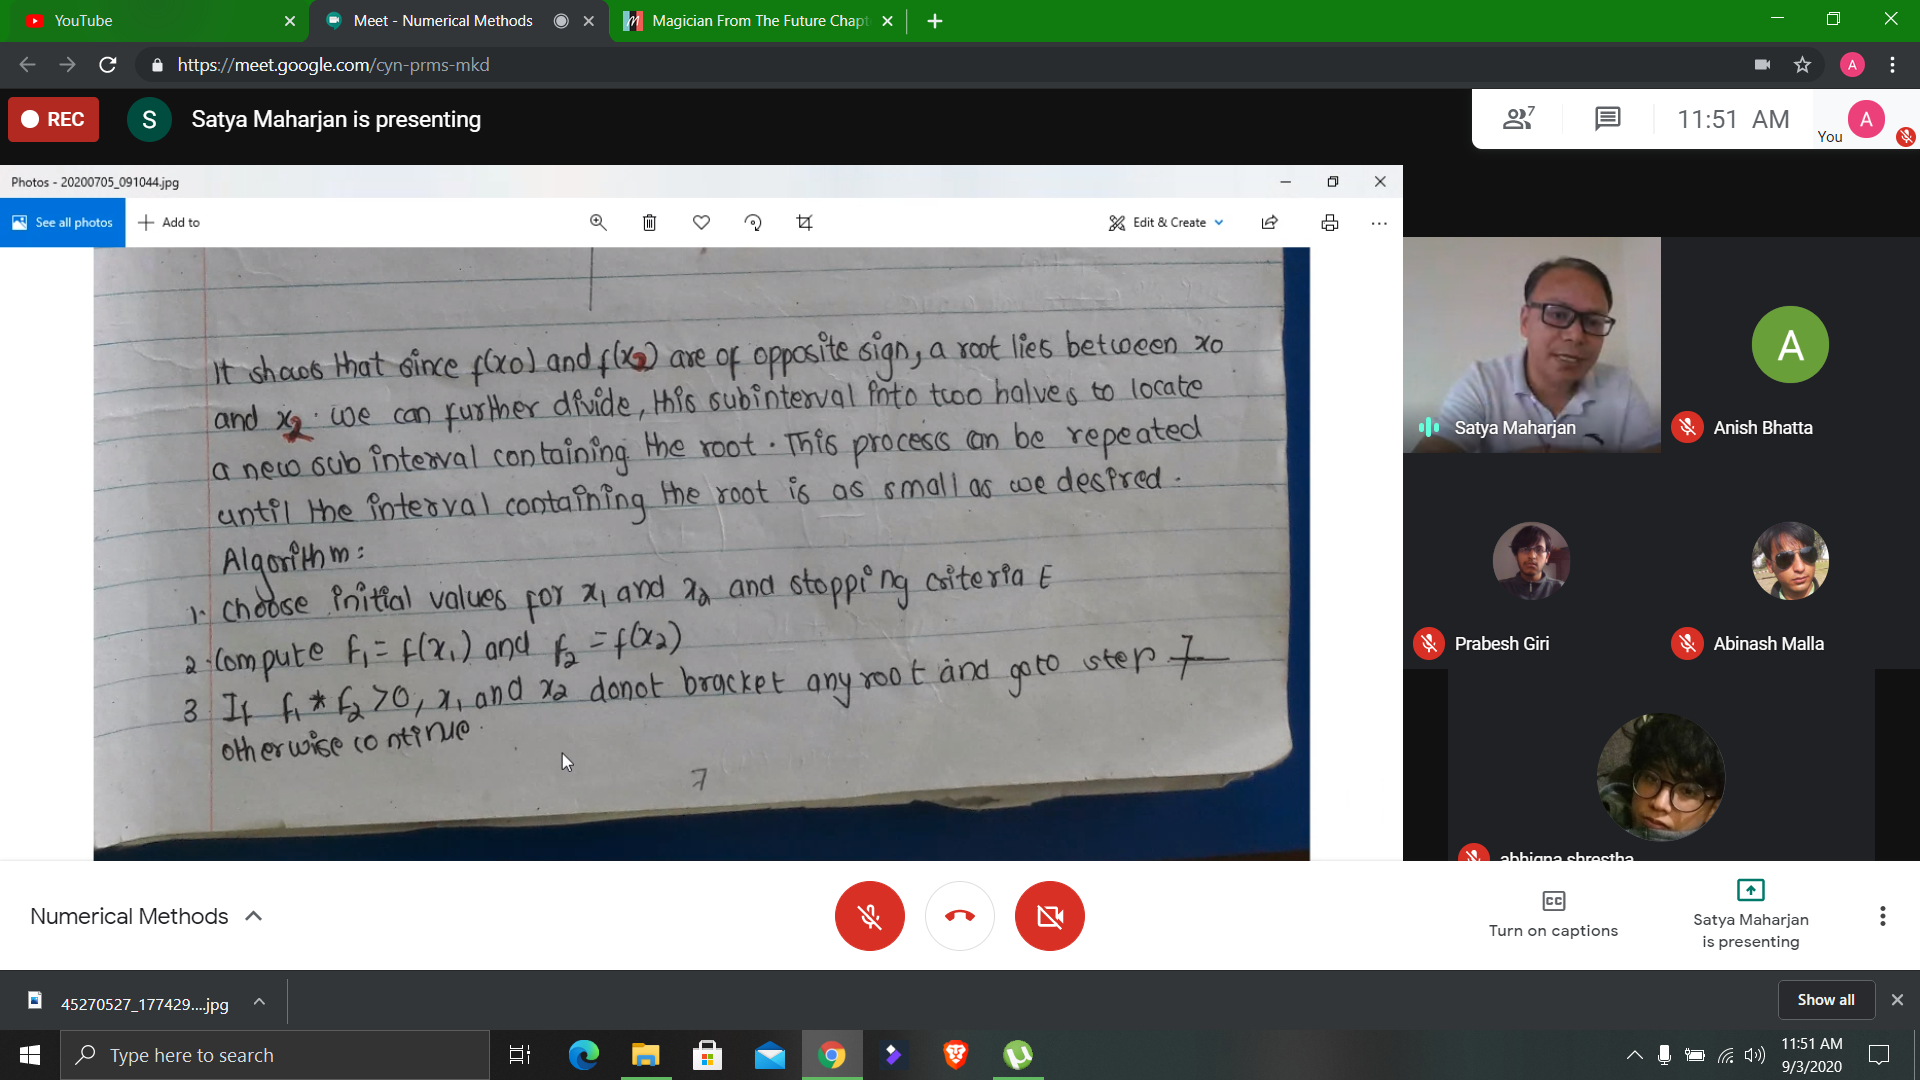 YouTube
Meet - Numerical Methods
Magician From The Future Chapt
https://meet.google.com/cyn-prms-mkd
A
REC
S
Satya Maharjan is presenting
7
11:51 AM
You
A
Photos - 20200705_091044.jpg
See all photos
Add to
Edit & Create
It shows that since f(x0) and f(x2) are of opposite sign, a root lies between x0
and x2. we can further divide, this subinterval into two halves to locate
a new sub interval containing the root. This process can be repeated
until the interval containing the root is as small as we desired.
Algorithm:
1. choose initial values for x1 and x2 and stopping criteria E
2. Compute f1 = f(x1) and f2 = f(x2)
3 If f1 * f2 >0, x1 and x2 donot bracket any root and goto step 7
otherwise continue.
7
Satya Maharjan
A
Anish Bhatta
Prabesh Giri
Abinash Malla
abhigna shrestha
Numerical Methods
CC
Turn on captions
Satya Maharjan
is presenting
45270527_177429....jpg
Show all
Type here to search
11:51 AM
9/3/2020